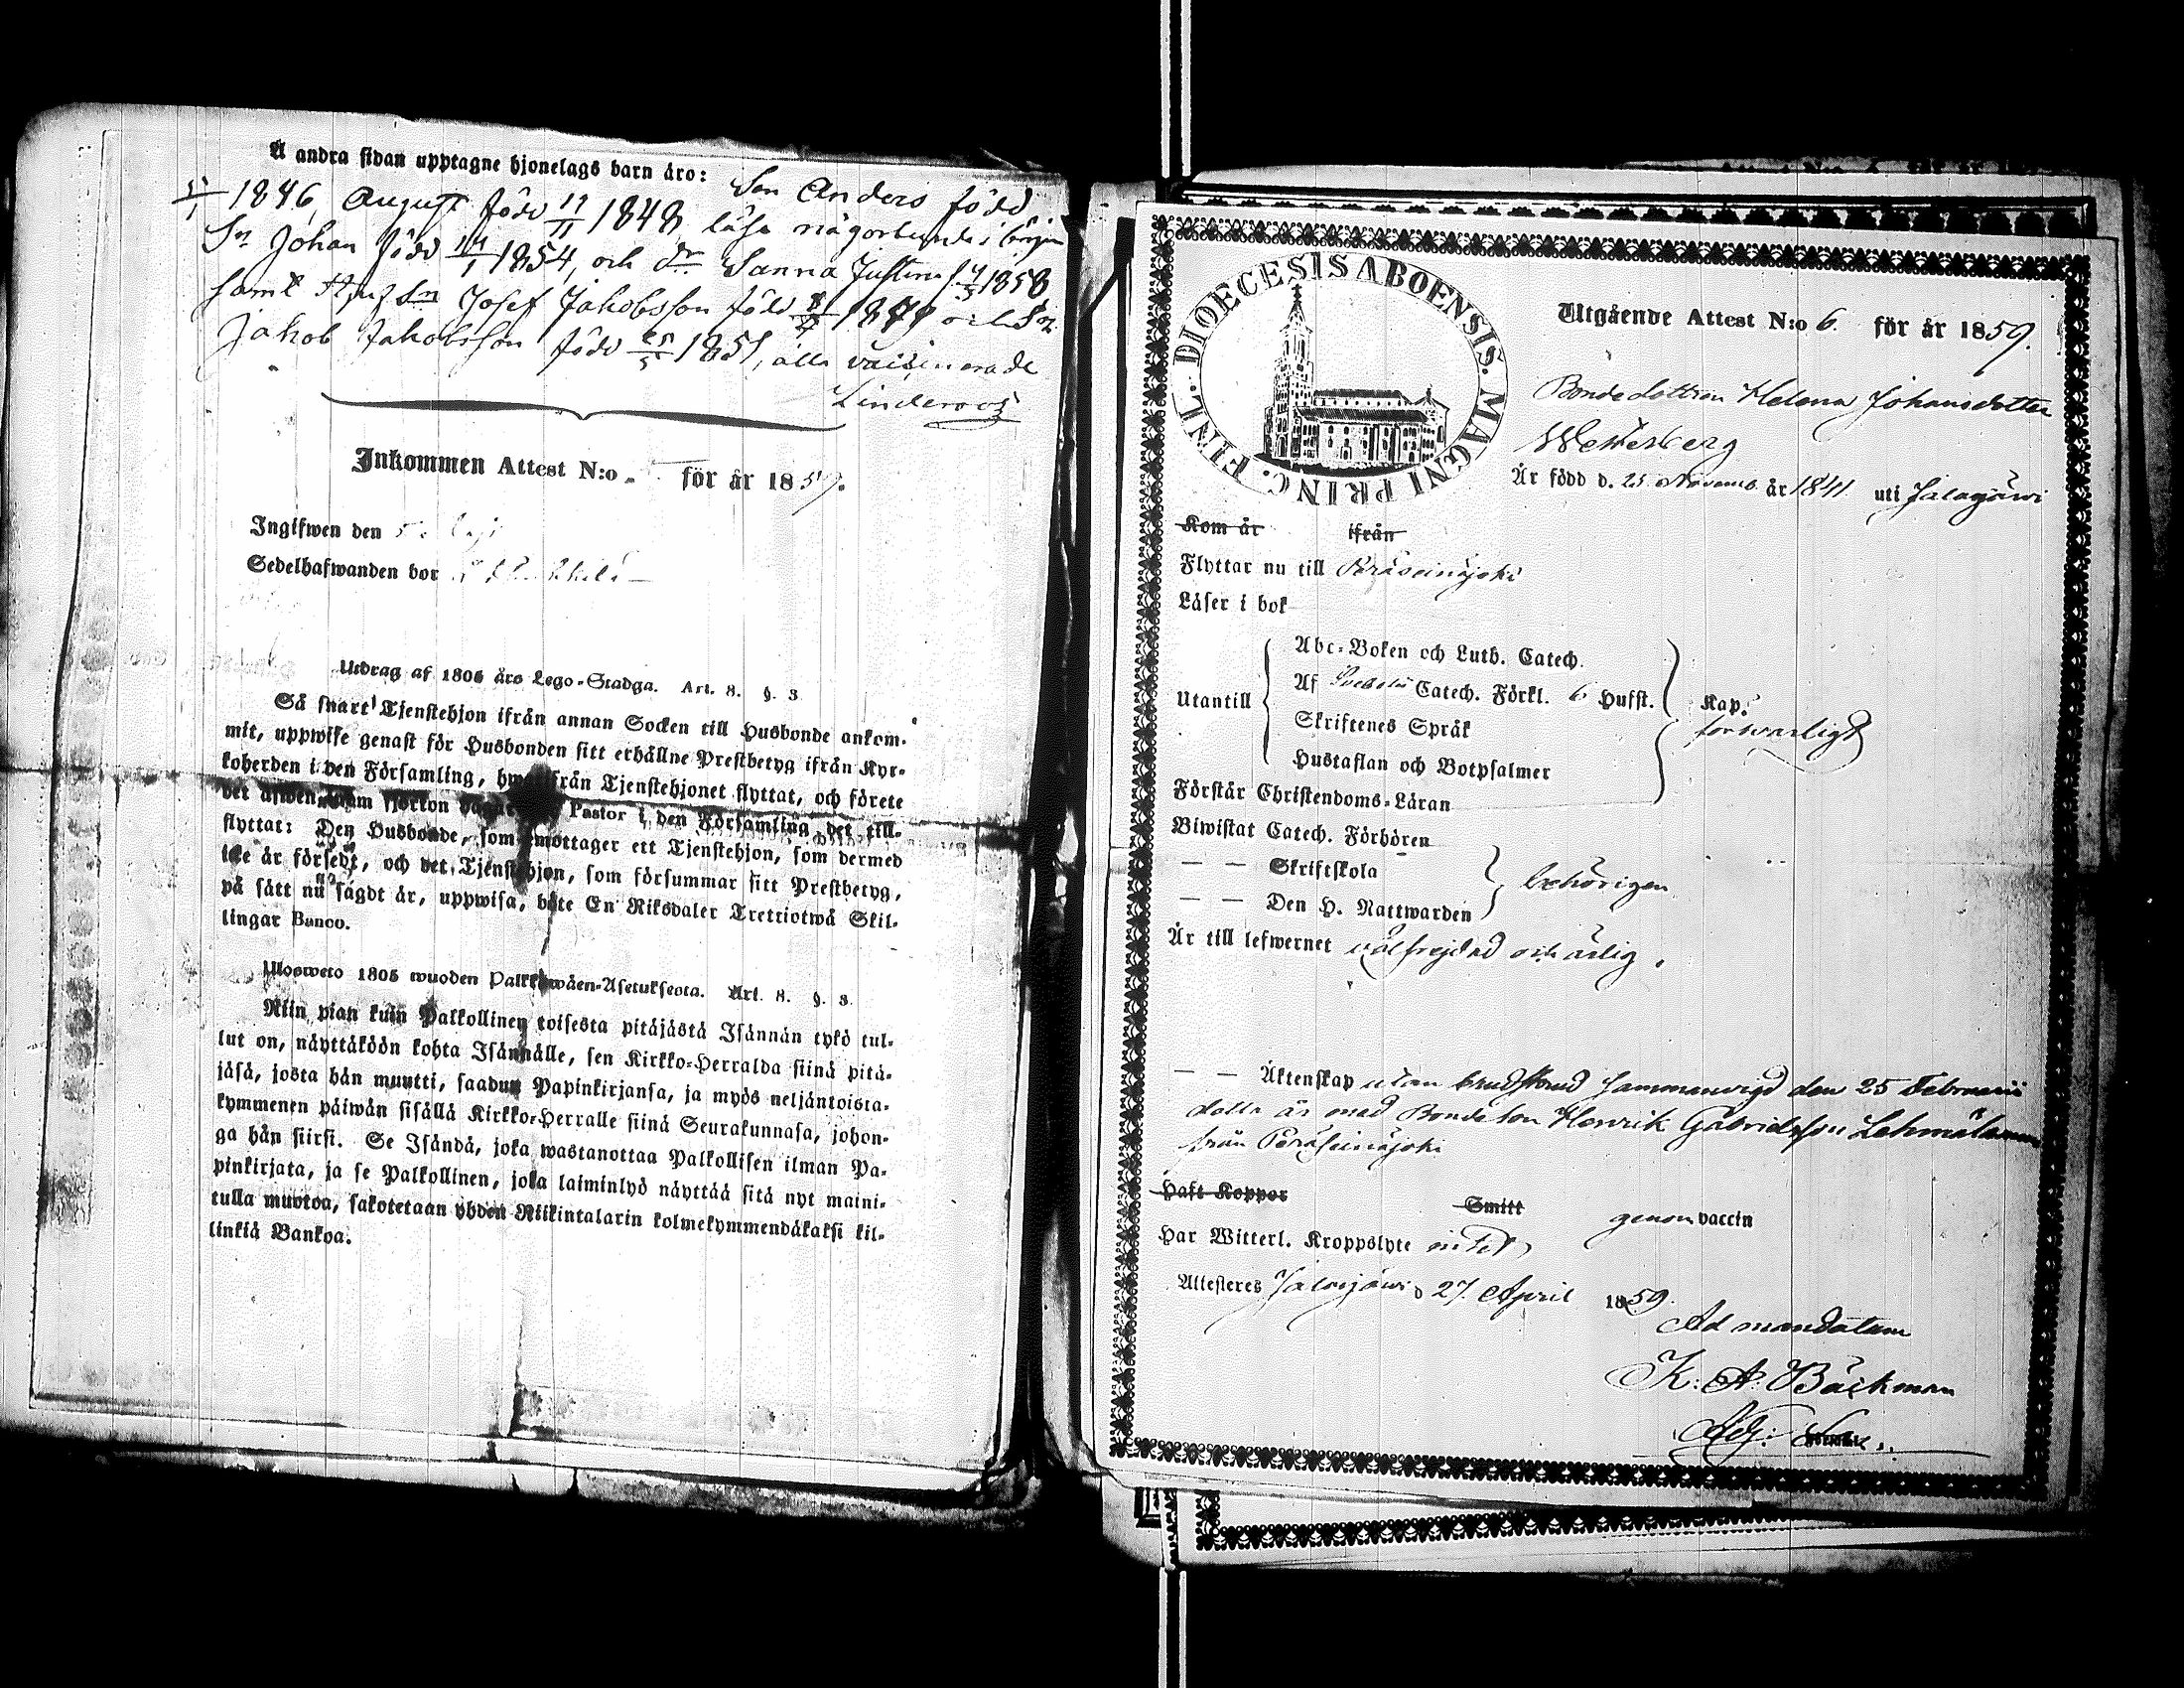 Å andra sidan upptagne hjonelags barn äro:
Son Anders född
1846, August född 19/11 1848 läsa någorlunda i början
Sn Johan född 14/1 1854, och dr Sanna Justina f. 4/5 1858
samt Josef Jakobsson född och Sn
Jakob Jakobsson född 25/5 1851, alla vaccinerade
Linderoos
Inkommen Attest N:o för år 1859.
Ingifwen den
Sedelhafwanden bor
Utdrag af 1805 års Lego-Stadga. Art. 8. §. 3.
Så snart Tjenstehjon ifrån annan Socken till Husbonde ankom-
mit, uppwise genast för Husbonden sitt erhållne Prestbetyg ifrån Kyr-
koherden i den Församling, hwarifrån Tjenstehjonet flyttat, och förete
det äfwen inom fjorton dagar Pastor i den Församling det till-
flyttat: Den Husbonde, som emottager ett Tjenstehjon, som dermed
icke är försedt, och det Tjenstehjon, som försummar sitt Prestbetyg,
på sätt nu sagdt är, uppwisa, böte En Riksdaler Trettiotwå Skil-
lingar Banco.
Ulosweto 1805 wuoden Palkkawäen-Asetuksesta. Art. 8. §. 3.
Niin pian kuin Palkollinen toisesta pitäjästä Isännän tykö tul-
lut on, näyttäköön kohta Isännälle, sen Kirkko-Herralda siinä pitä-
jäsä, josta hän muutti, saadun Papinkirjansa, ja myös neljäntoista-
kymmenen päiwän sisällä Kirkko-Herralle siinä Seurakunnasa, johon-
ga hän siirsi. Se Isändä, joka wastanottaa Palkollisen ilman Pa-
pinkirjata, ja se Palkollinen, joka laiminlyö näyttää sitä nyt maini-
tulla muotoa, sakotetaan yhden Riikintalarin kolmekymmendäkaksi kil-
linkiä Bankoa.
DIOECESIS ABOENSIS. MAGNI PRINC. FINL.
Utgående Attest N:o 6. för år 1859.
Bondedottren Helena Johansdotter
Westerberg
Är född d. 25 Novemb. år 1841 uti Jalasjärwi
Kom år ifrån
Flyttar nu till Peräseinäjoki
Läser i bok
Utantill
Abc-Boken och Luth. Catech.
Af Svebelii Catech. Förkl. 6 Hufst. Kap.
Skriftenes Språk
Hustaflan och Botpsalmer
försvarligt
Förstår Christendoms-Läran
Biwistat Catech. Förhören
— — Skriftskola
— — Den H. Nattwarden
behörigen
Är till lefwernet välfrejdad och ärlig.
— — Äktenskap utan brudskrud sammanvigd den 25 Februarii
detta år med Bondeson Henrik Gabrielsson
från Peräseinäjoki
Haft Koppor Smitt genom vaccin
Har Witterl. Kroppslyte intet
Attesteres Jalasjärwi d 27 April 1859.
Ad mandatum
K. A. Bäckman
Adj: